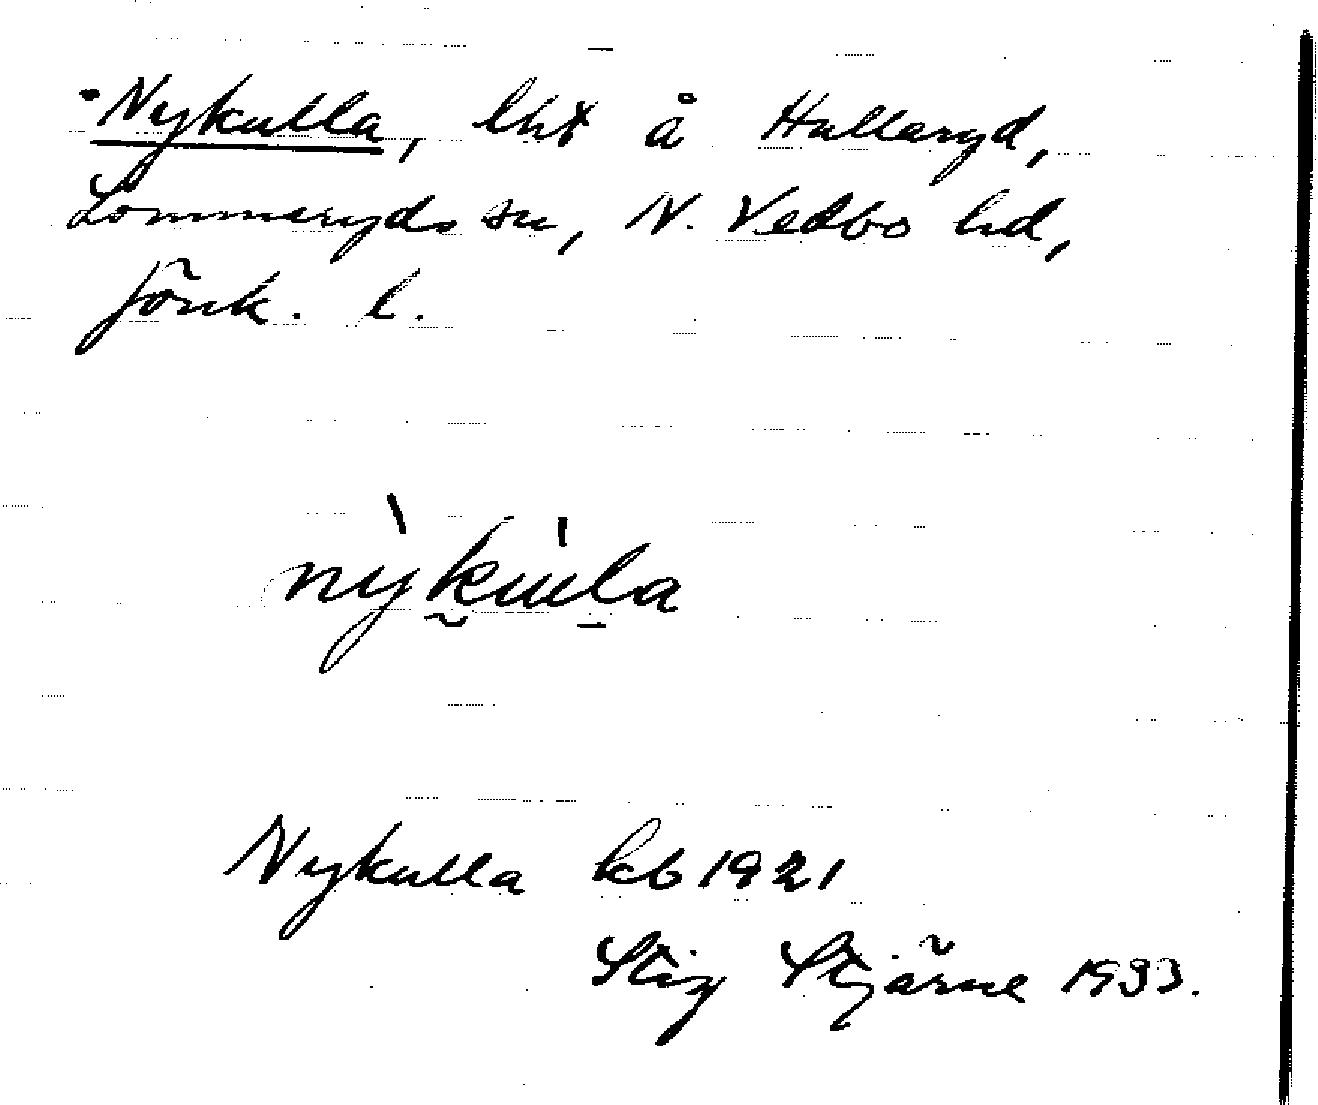 Nykulla, lht å Hullaryd,
Lommaryds sn, N. Vedbo hd,
Jönk. l.
nỳku̍la
Nykulla kb 1921
Stig Stjärne 1933.